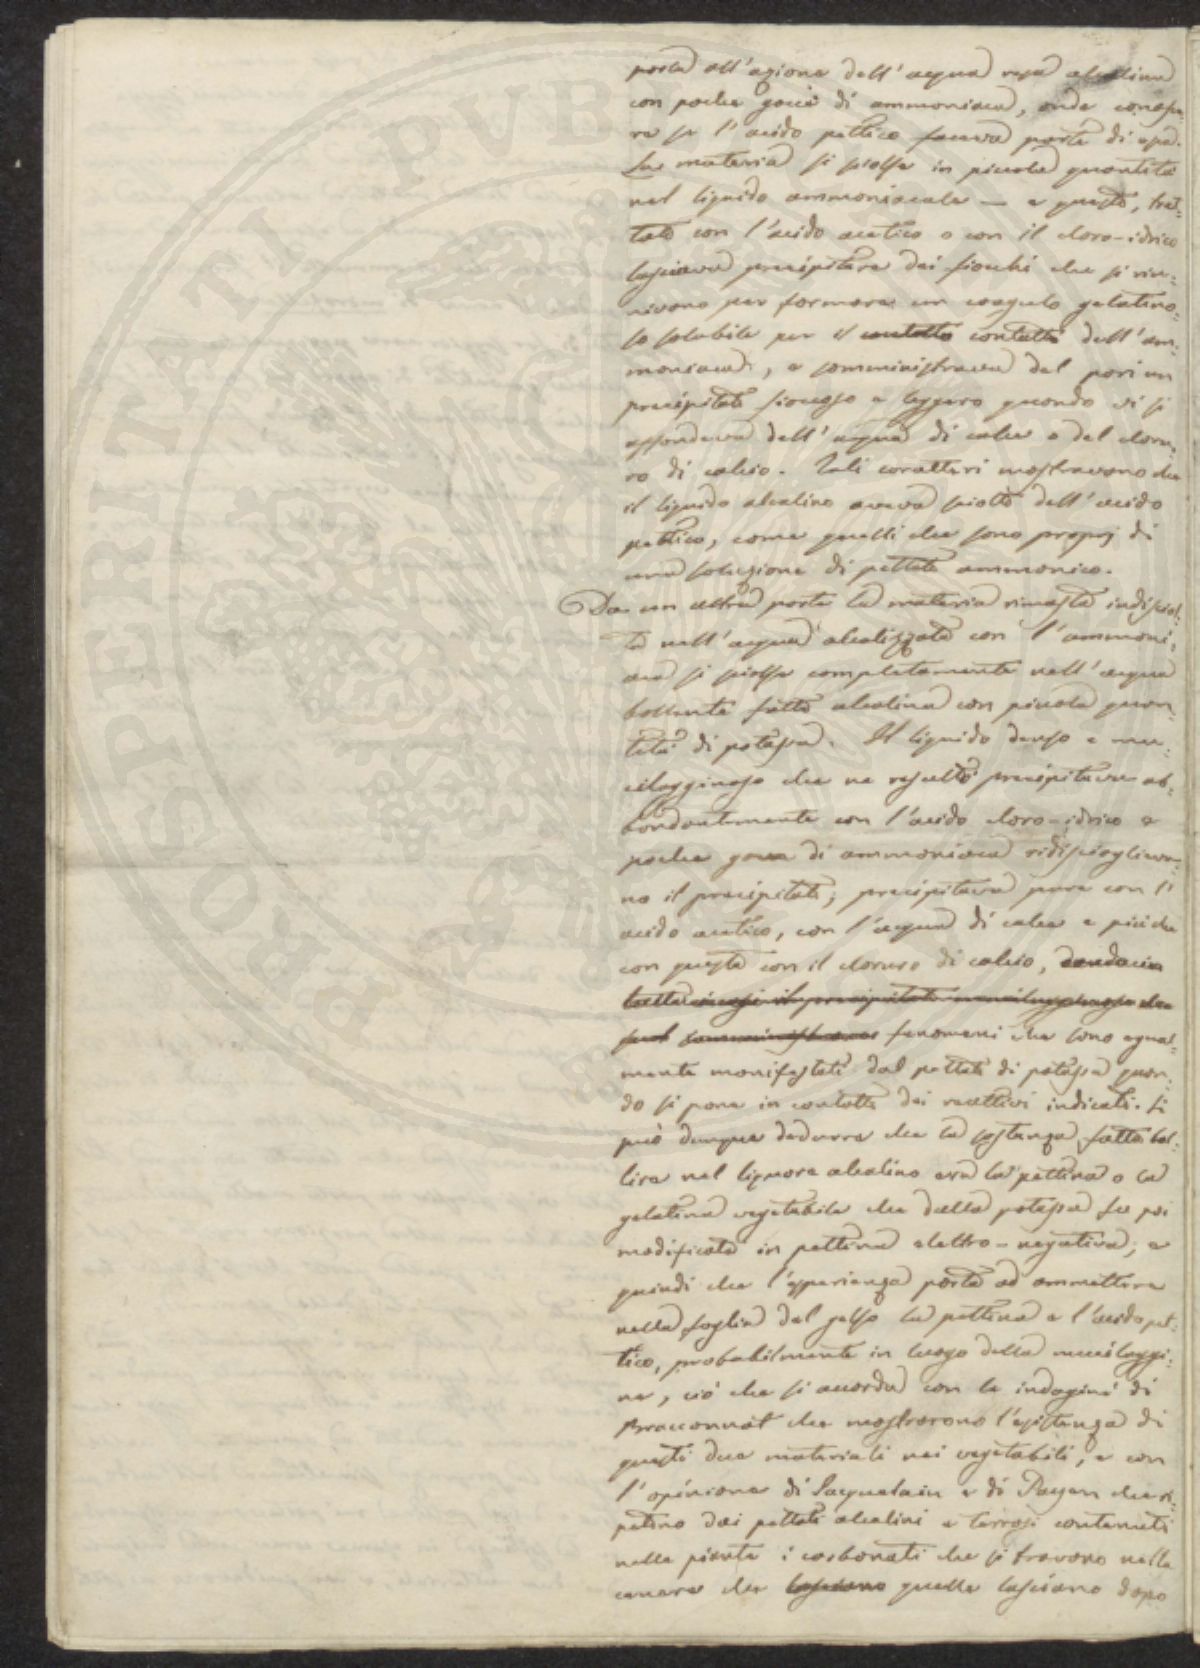 PROSPERITATI PVBL
posta all'azione dell'acqua resa alcalina
con poche goccie di ammoniaca, onde conosce-
re se l'acido pettico faceva parte di essa.
La materia si sciolse in piccola quantità
nel liquido ammoniacale — e questo, trat-
tato con l'acido acetico o con il cloro-idrico
lasciava precipitare dei fiocchi che si riu-
nivono per formare un coagulo gelatino-
so solubile per il contatto contatto dell'am-
moniaca, e somministrava del pari un
precipitato fioccoso e leggero quando vi si
affondeva dell'acqua di calce o del cloru-
ro di calcio. Tali caratteri mostravono che
il liquido alcalino aveva sciolto dell'acido
pettico, come quelli che sono proprj di
una soluzione di pettato ammonico.
Da un altra parte la materia rimasta indisciol-
ta nell'acqua alcalizzata con l'ammoni-
aca si sciolse completamente nell'acqua
bollente fatta alcalina con piccola quan-
tità di potassa. Il liquido denso e mu-
cilagginoso che ne resultò precipitava ab-
bondantemente con l'acido cloro-idrico e
poche gocce di ammoniaca ridiscioglieva-
no il precipitato; precipitava pure con l'
acido acetico, con l'acqua di calce e più che
con questa con il cloruro di calcio,
fenomeni che sono egual-
mente manifestati dal pettato di potassa quan-
do si pone in contatto dei reattivi indicati. Si
può dunque dedurre che la sostanza fatta bol-
lire nel liquore alcalino era la pettina o la
gelatina vegetabile che dalla potassa fu poi
modificata in pettina elettro-negativa; e
quindi che l'esperienza porta ad ammettere
nella foglia del gelso la pettina e l'acido pet-
tico, probabilmente in luogo della mucilaggi-
ne, ciò che si accorda con le indagini di
Bracconnot che mostrarono l'esistenza di
questi due materiali nei vegetabili, e con
l'opinione di Jacquelain e di Payen che ri-
petino dai pettati alcalini e terrosi contenuti
nelle piante i carbonati che si trovono nelle
cenere che lasciano quelle lasciano dopo